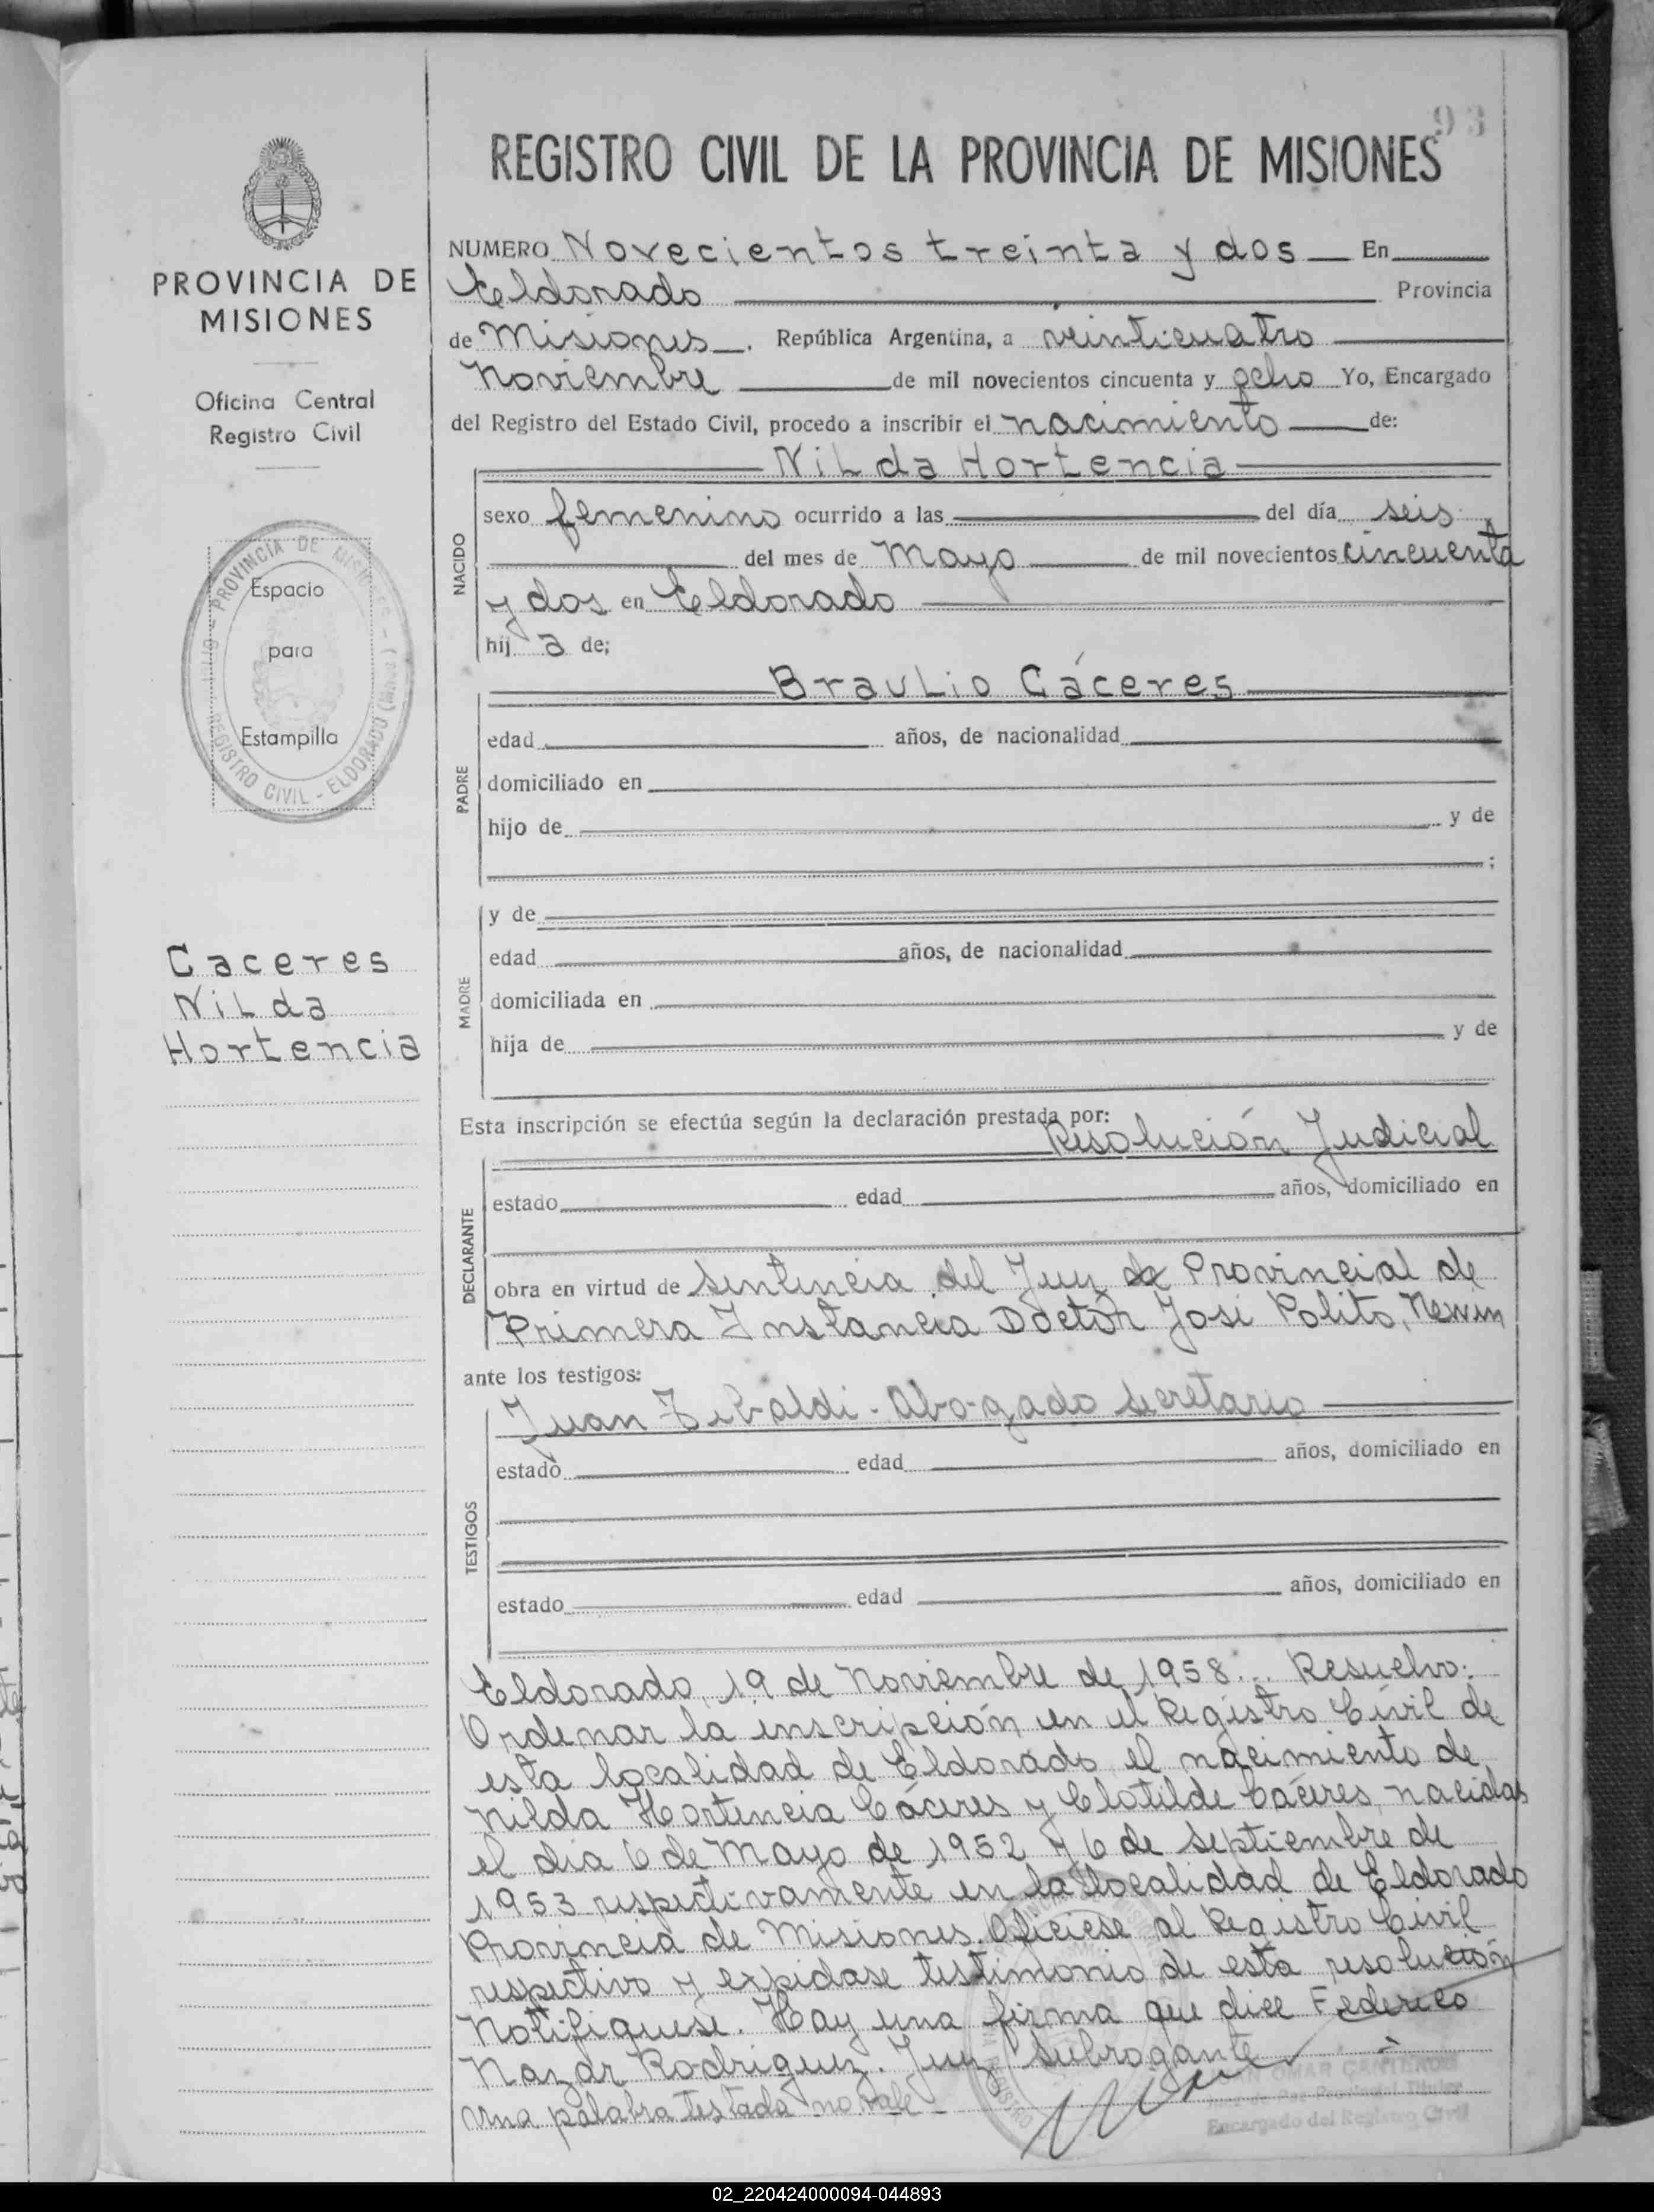 93
REGISTRO CIVIL DE LA PROVINCIA DE MISIONES
PROVINCIA DE
MISIONES
Oficina Central
Registro Civil
PROVINCIA DE MISIONES
REGISTRO CIVIL - ELDORADO
Espacio
para
Estampilla
Caceres
Nilda
Hortencia
NUMERO Novecientos treinta y dos En
Eldorado Provincia
de Misiones. República Argentina, a veinticuatro
Noviembre de mil novecientos cincuenta y ocho Yo, Encargado
del Registro del Estado Civil, procedo a inscribir el nacimiento de:
Nilda Hortencia
NACIDO
sexo femenino ocurrido a las del día seis
del mes de Mayo de mil novecientos cincuenta
y dos en Eldorado
hija de;
Braulio Cáceres
PADRE
edad años, de nacionalidad
domiciliado en
hijo de y de
;
MADRE
y de
edad años, de nacionalidad
domiciliada en
hija de y de
Esta inscripción se efectúa según la declaración prestada por:
Resolución Judicial
DECLARANTE
estado edad años, domiciliado en
obra en virtud de sentencia del Juez de Provincial de
Primera Instancia Doctor José Polito,
ante los testigos:
Juan Abogado Secretario
TESTIGOS
estado edad años, domiciliado en
estado edad años, domiciliado en
Eldorado, 19 de Noviembre de 1958... Resuelvo:
Ordenar la inscripción en el Registro Civil de
esta localidad de Eldorado el nacimiento de
Nilda Hortencia Cáceres y Clotilde Cáceres, nacidas
el dia 6 de Mayo de 1952 y 6 de Septiembre de
1953 respectivamente en la localidad de Eldorado
Provincia de Misiones. Oficiese al Registro Civil
respectivo y expidase testimonio de esta resolución
Notifiquese. Hay una firma que dice Federico
Nazar Rodriguez. Juez Subrogante
Una palabra testada no vale
OMAR CANTEROS
Juez de Paz Provincial Titular
Encargado del Registro Civil
02_220424000094-044893